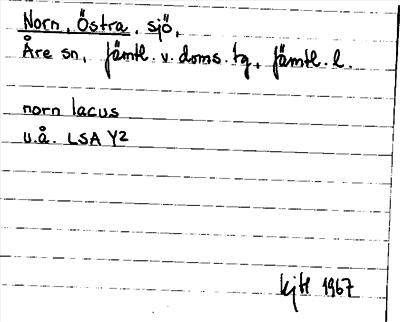 Norn, Östra, sjö,
Åre sn, Jämtl. v. doms. tg, Jämtl. l.
norn lacus
u.å. LSA Y2
kjtl 1967